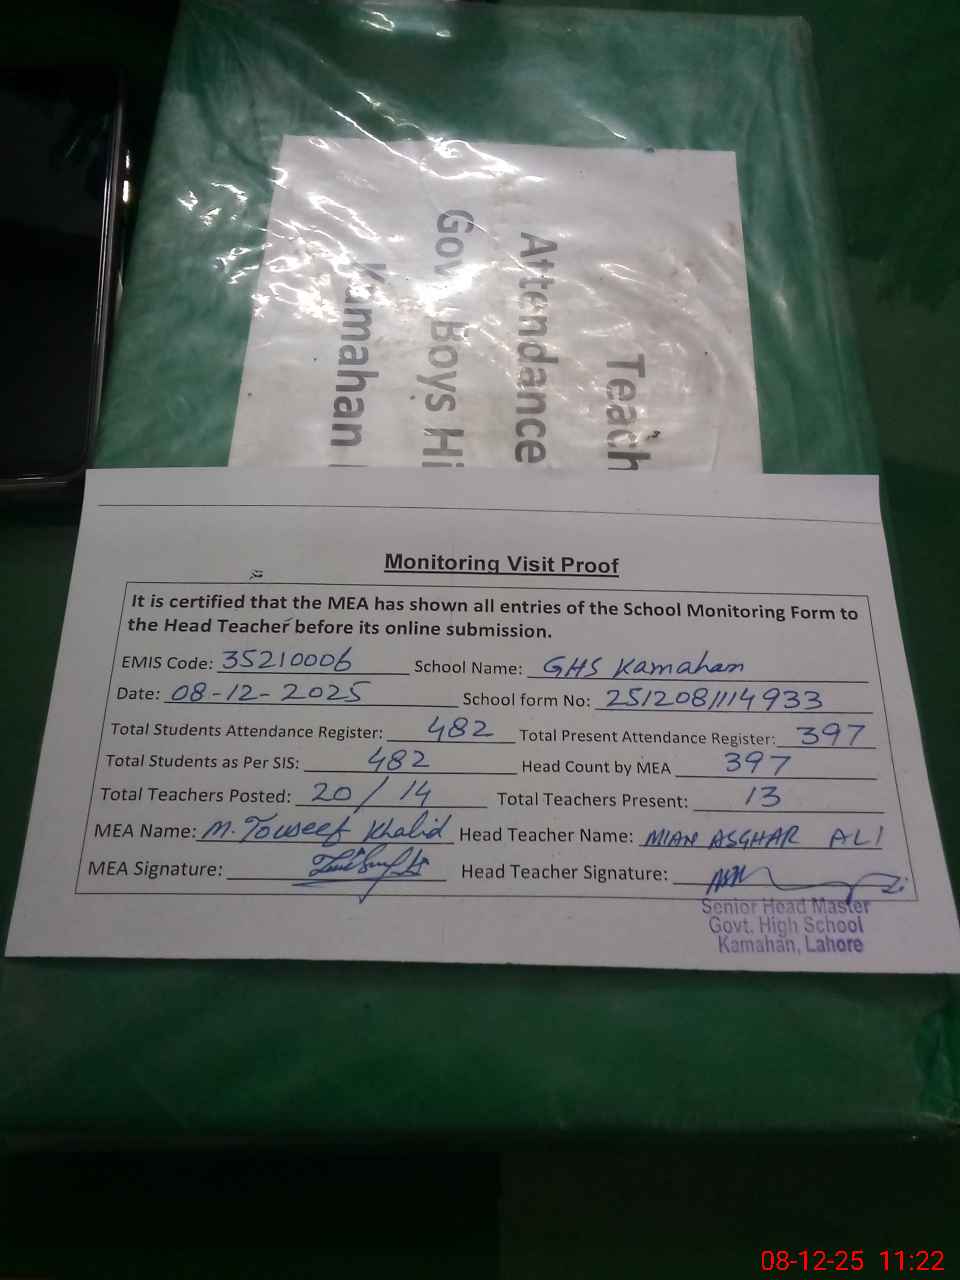 Teach
Attendance
Gov Boys Hi
Kamahan
Monitoring Visit Proof
It is certified that the MEA has shown all entries of the School Monitoring Form to
the Head Teacher before its online submission.
EMIS Code: 35210006 School Name: GHS Kamahan
Date: 08-12-2025 School form No: 2512081114933
Total Students Attendance Register: 482 Total Present Attendance Register: 397
Total Students as Per SIS: 482 Head Count by MEA 397
Total Teachers Posted: 20/14 Total Teachers Present: 13
MEA Name: M. Touseef Khalid Head Teacher Name: MIAN ASGHAR ALI
MEA Signature: Head Teacher Signature:
Senior Head Master
Govt. High School
Kamahan, Lahore
08-12-25 11:22